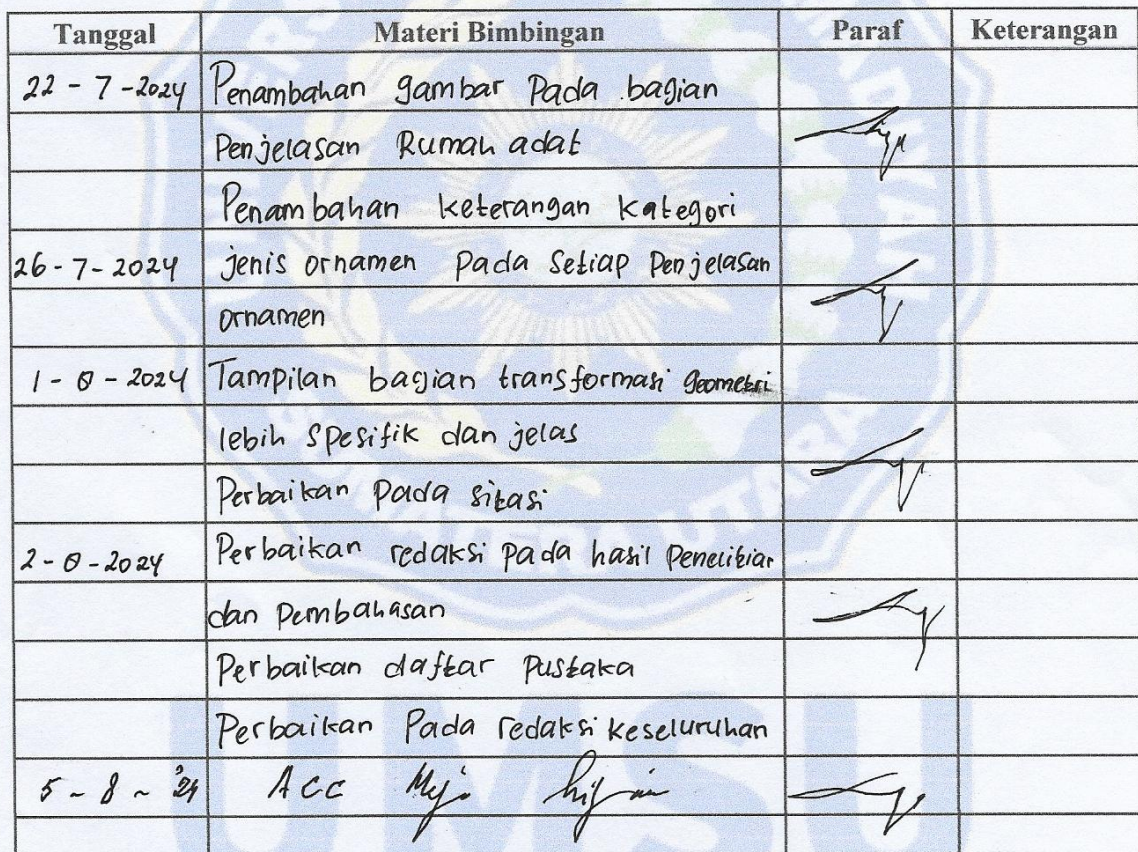 Tanggal Materi Bimbingan Paraf Keterangan
22 - 7 - 2024 Penambahan gambar Pada bagian
Penjelasan Rumah adat
Penambahan keterangan kategori
26 - 7 - 2024 jenis ornamen pada Setiap Penjelasan
ornamen
1 - 8 - 2024 Tampilan bagian transformasi geometri
lebih spesifik dan jelas
Perbaikan pada sitasi
2 - 8 - 2024 Perbaikan redaksi pada hasil Penelitian
dan Pembahasan
Perbaikan daftar Pustaka
Perbaikan Pada redaksi keseluruhan
5 - 8 - '24 ACC Meja
SUMATERA UTARA
UMSU